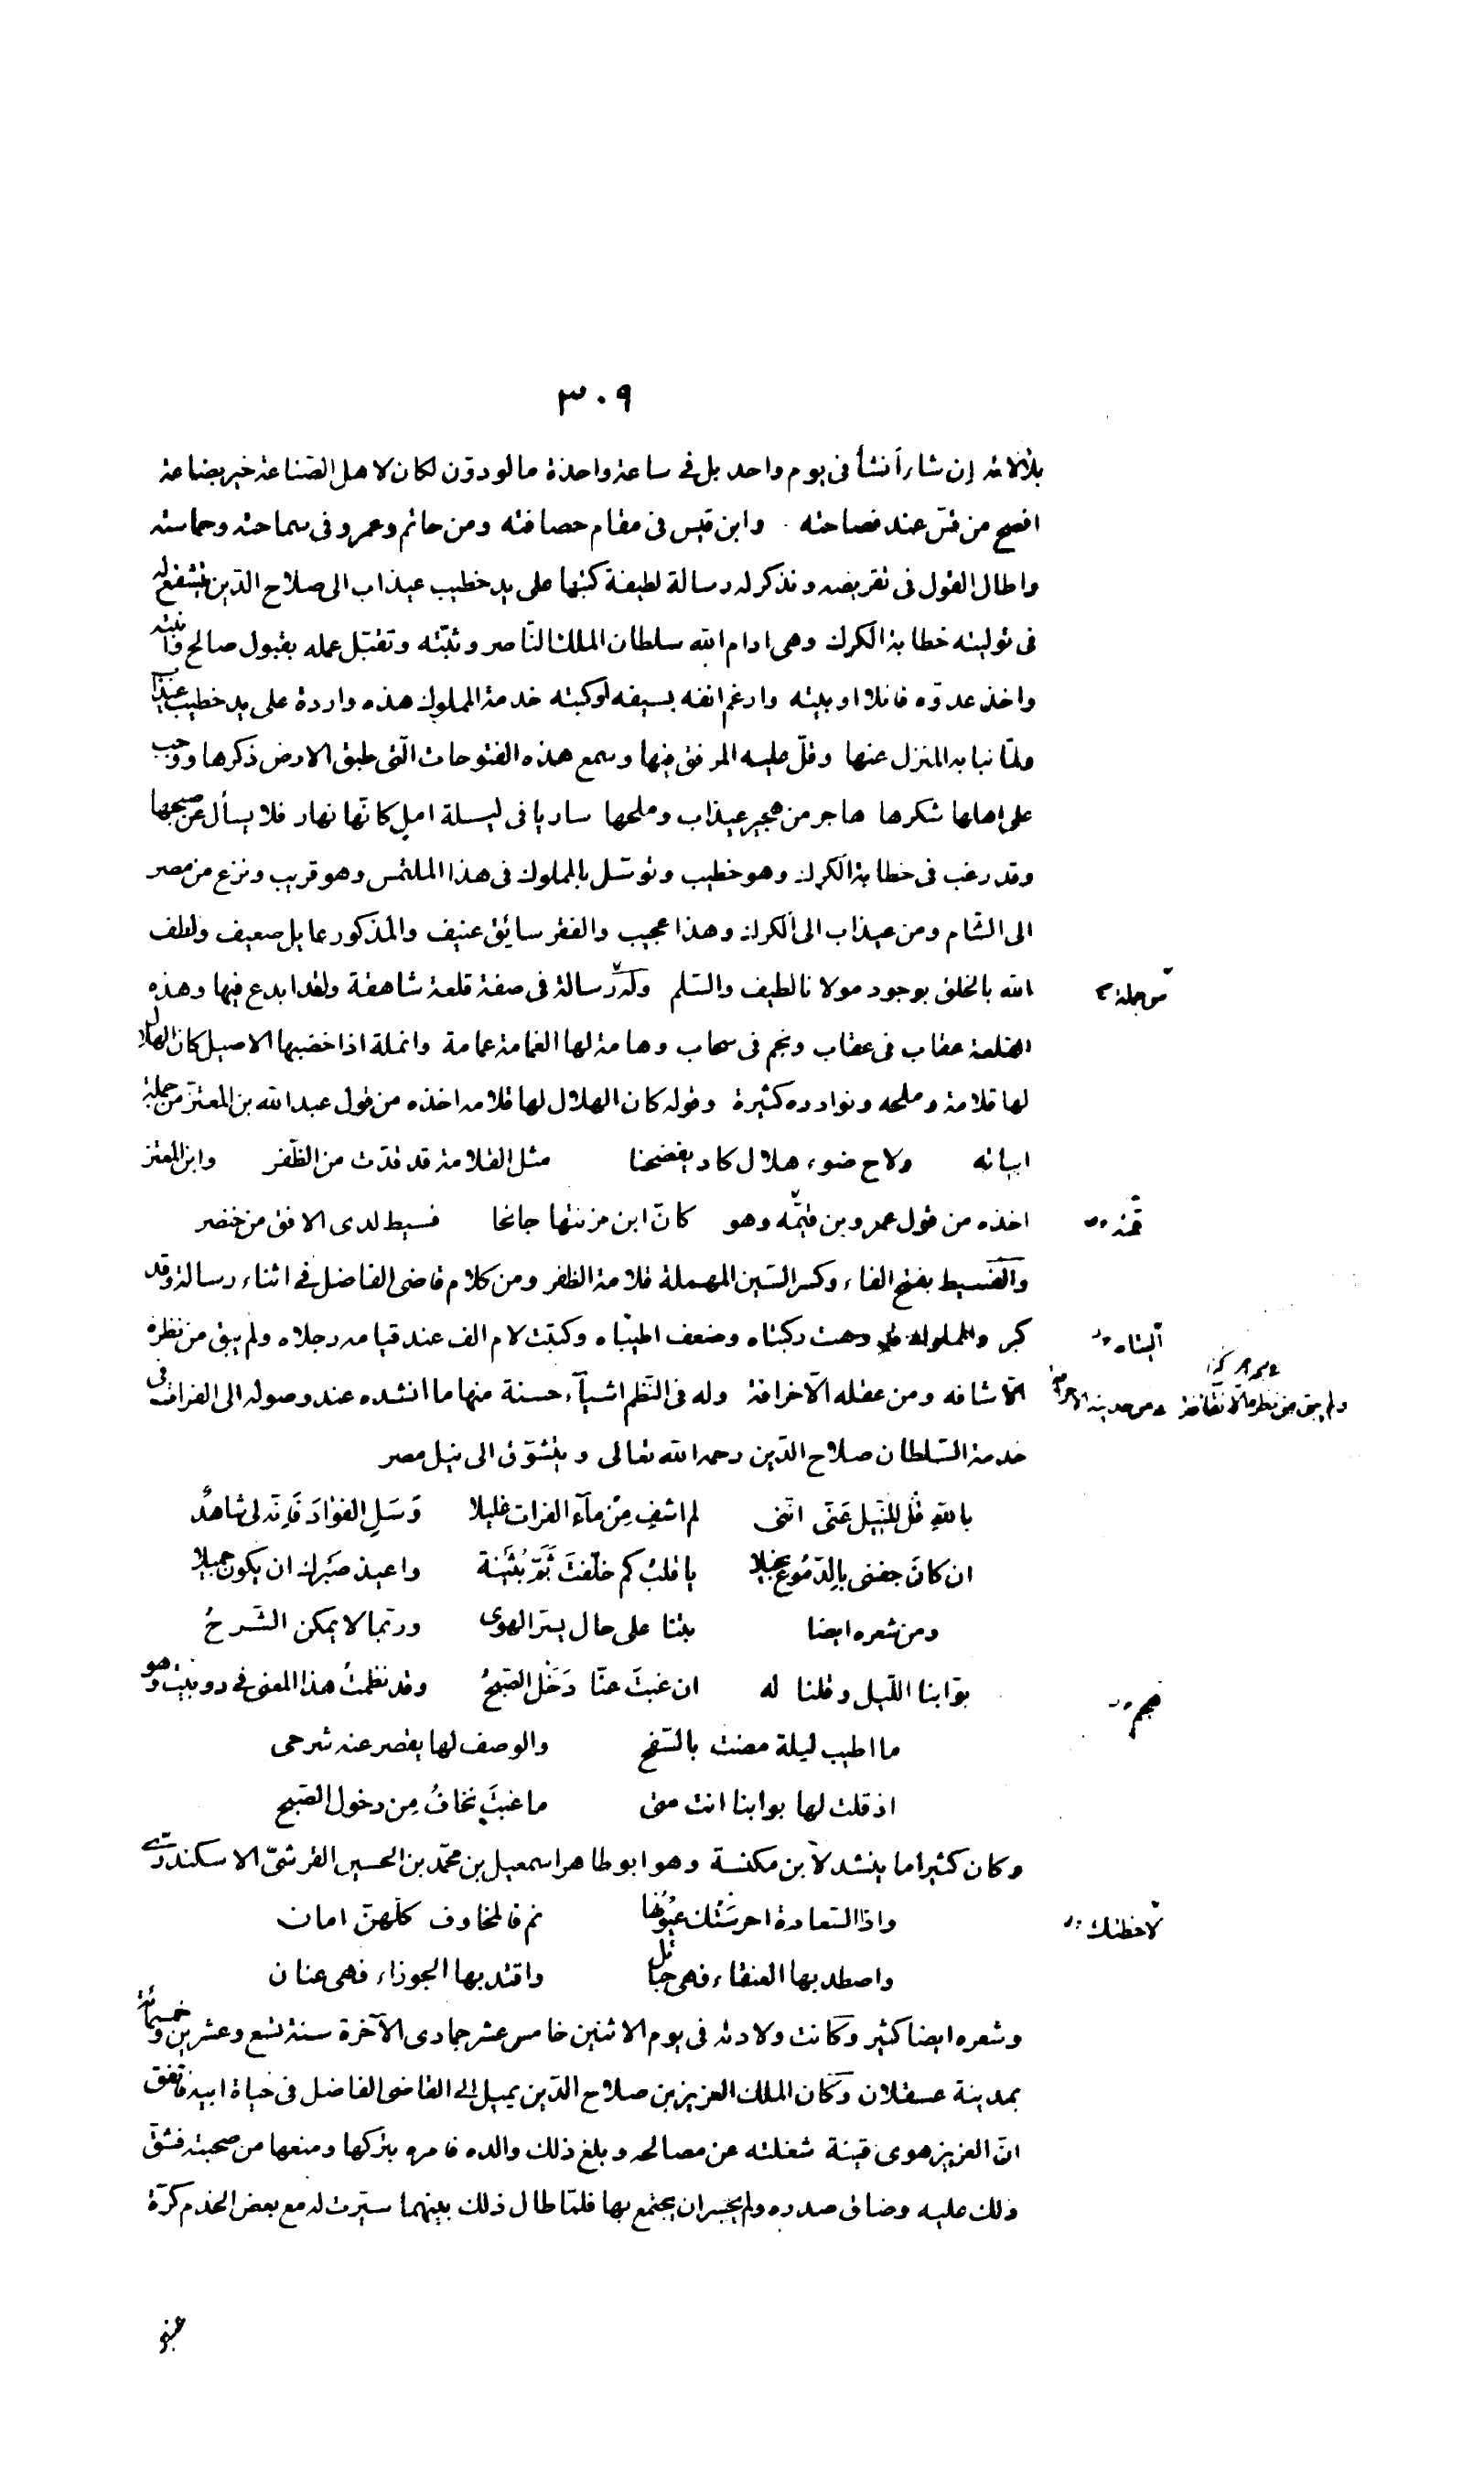 ٣٠٩
بلاغته إن شاء أنشأ فى يوم واحد بل فى ساعة واحدة ما لو دوّن لكان لاهل الصّناعة خير بضاعة
افصح من قسّ عند فصاحته وابن قيس فى مقام حصافته ومن حاتم وعمرو فى سماحته وحماسته
واطال القول فى تقريضه ونذكر له رسالة لطيفة كتبها على يد خطيب عيذاب الى صلاح الدّين يتشفع له
فى توليته خطابة الكرك وهى ادام الله سلطان الملك النّاصر وثبّته وتقبّل عمله بقبول صالح وانبته
واخذ عدوّه قائلا او بيته وارغم انفه بسيفه وكبته خدمة المملوك هذه واردة على يد خطيب عيذاب
ولمّا نبا به المنزل عنها وقلّ عليه المرفق فيها وسمع هذه الفتوحات الّتى طبق الارض ذكرها ووجب
على اهلها شكرها هاجر من هجير عيذاب وملحها ساريا فى ليلة امل كانّها نهار فلا يسأل عن صبحها
وقد رغب فى خطابة الكرك وهو خطيب وتوسّل بالمملوك فى هذا الملتمس وهو قريب ونزع من مصر
الى الشّام ومن عيذاب الى الكرك وهذا عجيب والفقر سايق عنيف والمذكور عايل ضعيف ولطف
الله بالخلق بوجود مولانا لطيف والسّلم وله رسالة فى صفة قلعة شاهقة ولقد ابدع فيها وهذه
من جملة
القلعة عقاب فى عقاب ونجم فى سحاب وهامة لها الغمامة عمامة وانملة اذا خضبها الاصيل كان الهلال
لها قلامة وملحه ونوادره كثيرة وقوله كان الهلال لها قلامه اخذه من قول عبد الله بن المعتزّ من جملة
ابياته ولاح ضوء هلال كاد يفضحنا مثل القلامة قد قدّت من الظّفر وابن المعتز
اخذه من قول عمرو بن قيمّه وهو كانّ ابن مزنتها جانحا فسيط لدى الافق من خنصر
قمئه
والفسيط بفتح الفاء وكسر السّين المهملة قلامة الظفر ومن كلام قاضى الفاضل فى اثناء رسالة وقد
كبر والمملوك قد وهت ركبتاه وضعف اطيباه وكتبت لام الف عند قيامه رجلاه ولم يبق من نظره
اليتاه
الّا شافه ومن عقله الّا خرافة وله فى النّظم اشيآء حسنة منها ما انشده عند وصوله الى الفرات فى
خدمة السّلطان صلاح الدّين رحمه الله تعالى ويتشوّق الى نيل مصر
باللهِ قُل للنّيل عَنّى انّنى لم اشفِ مِنْ مآء الفرات غليلا وَسَلِ الفؤادَ فَاِنّه لى شاهدٌ
ان كانَ جفنى بالِدّمُوعِ بخيلا ياقلبُ كم خلّفتَ ثَمّ بُثَينة واعيذ صَبرك ان يكون جميلا
ومن شعره ايضا بتنا على حال يسرّ الهوى وربّما لا يمكن الشّرحُ
بوّابنا اللّيل وقلنا له ان غبتَ عنّا دَخَل الصّبحُ وقد نظمتُ هذا المعنى فى دوبيت وهو
هجم
ما اطيب ليلة مضت بالسّفح والوصف لها يقصر عنه شرحى
اذ قلت لها بوابنا انت متى ما غبتَ نخافُ مِن دخول الصّبح
وكان كثيرا ما ينشد لابن مكنسة وهو ابو طاهر اسمعيل بن محمّد بن الحسين القرشىّ الاسكندرىّ
واذا السّعادة احرسَتْك عيُونُها نم فالمخاوف كلّهنّ امان
لاحظتك
واصطد بها العنقاء فهى حبائل واقتد بها الجوزاء فهى عنان
وشعره ايضا كثير وكانت ولادته فى يوم الاثنين خامس عشر جمادى الآخرة سنة تسع وعشرين وخمسمائة
بمدينة عسقلان وكان الملك العزيز بن صلاح الدّين يميل الى القاضى الفاضل فى حياة ابيه فاتّفق
انّ العزيز هوى قينة شغلته عن مصالحه وبلغ ذلك والده فامره بتركها ومنعها من صحبته فشقّ
ذلك عليه وضاق صدره ولم يجسر ان يجتمع بها فلمّا طال ذلك بينهما سيّرت له مع بعض الخدم كرّة
عنبر